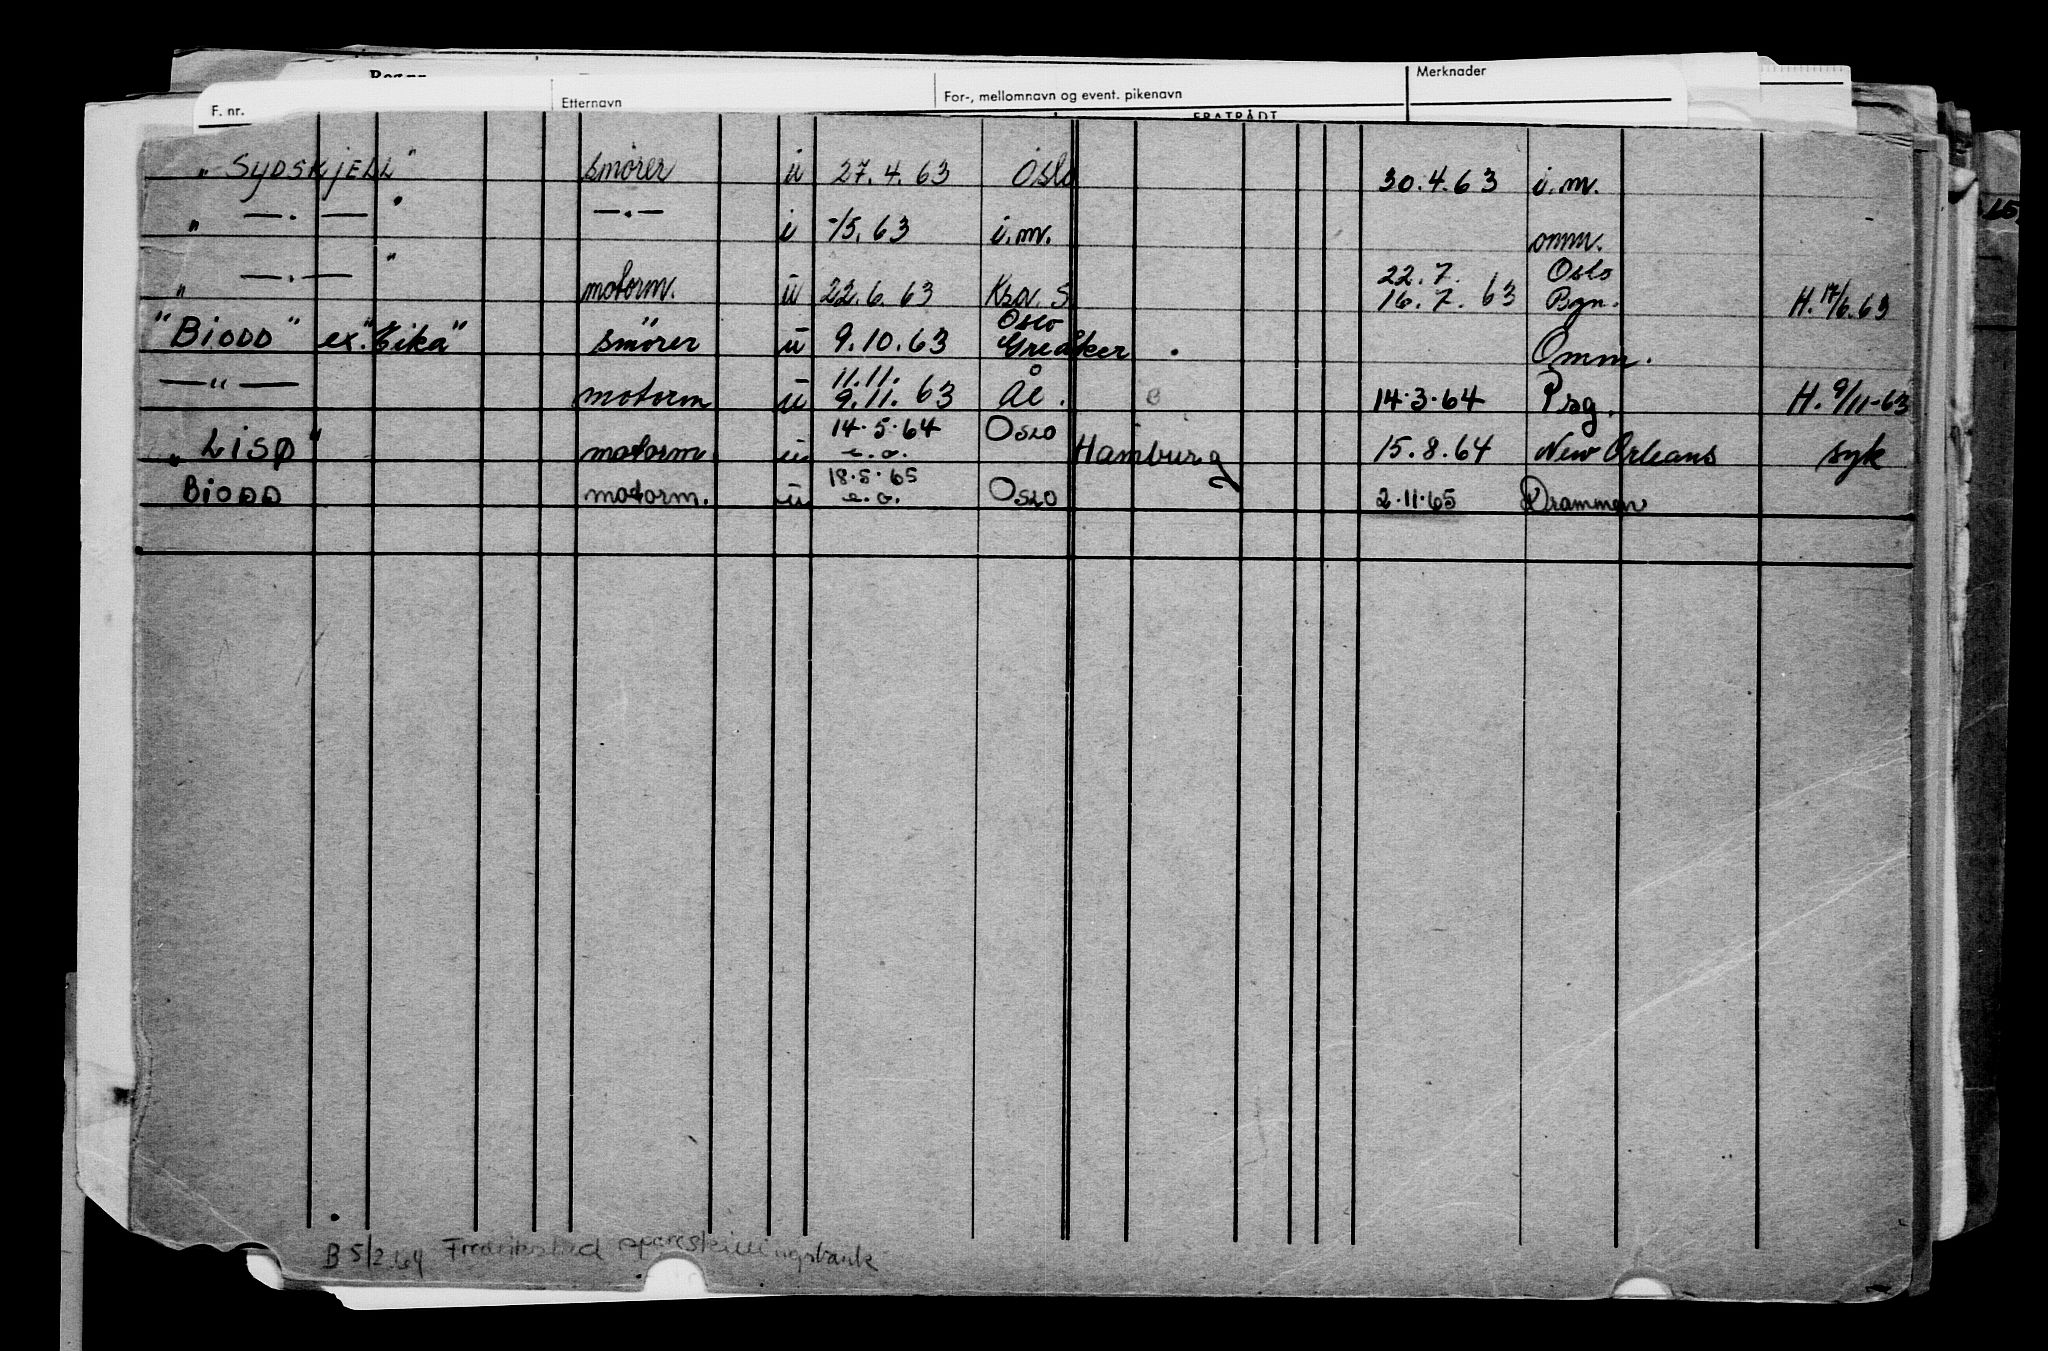 F. nr. Etternavn For-, mellomnavn og event. pikenavn Merknader
FRATRÅDT
"SYDSKJELL" smører u 27.4.63 Oslo 30.4.63 i.m.
" —.— " —.— i -/5.63 i.m. omm.
" —.— " motorm. u 22.6.63 Kra. S 22.7. Oslo
16.7.63 Bgn. H. 17/6.63
"BIODD" ex. "Eika" smører u 9.10.63 Oslo
Greåker . Omm.
—"— motorm u 11.11.
9.11.63 Ål. 14.3.64 Prg. H. 9/11-63
"LISØ" motorm u 14.5.64
e.o. Oslo Hamburg 15.8.64 New Orleans syk
BIODD motorm. u 18.5.65
e.o. Oslo 2.11.65 Drammen
B 5/2.64 Fredrikstad spareskillingsbank